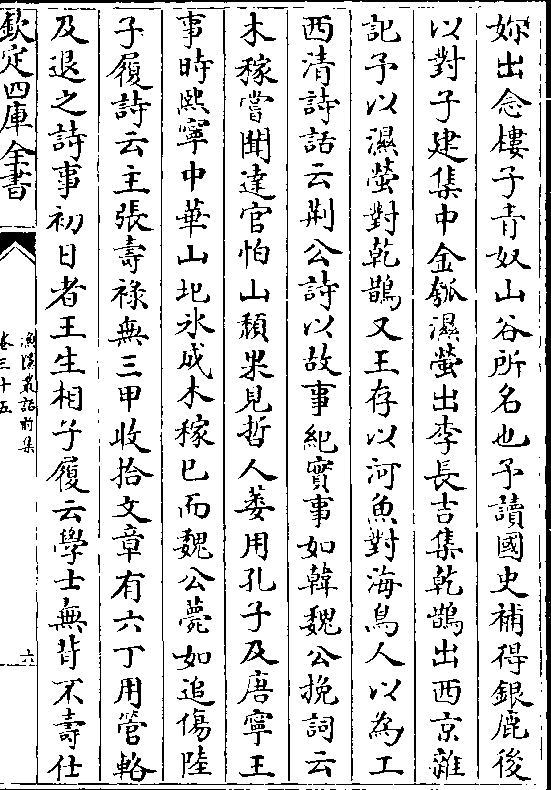 妳出念樓子青奴山谷所名也予讀國史補得銀鹿後
以對子建集中金瓠濕螢出李長吉集乾鵲出西京雜
記予以濕螢對乾鵲又王存以河魚對海鳥人以為工
西清詩話云荆公詩以故事紀實事如韓魏公挽詞云
木稼嘗聞達官怕山頹果見哲人萎用孔子及唐寧王
事時熙寧中華山圮氷成木稼已而魏公薨如追傷陸
子履詩云主張壽祿無三甲收拾文章有六丁用管輅
及退之詩事初日者王生相子履云學士無背不壽仕
欽定四庫全書
漁隱叢話前集
卷三十五
六